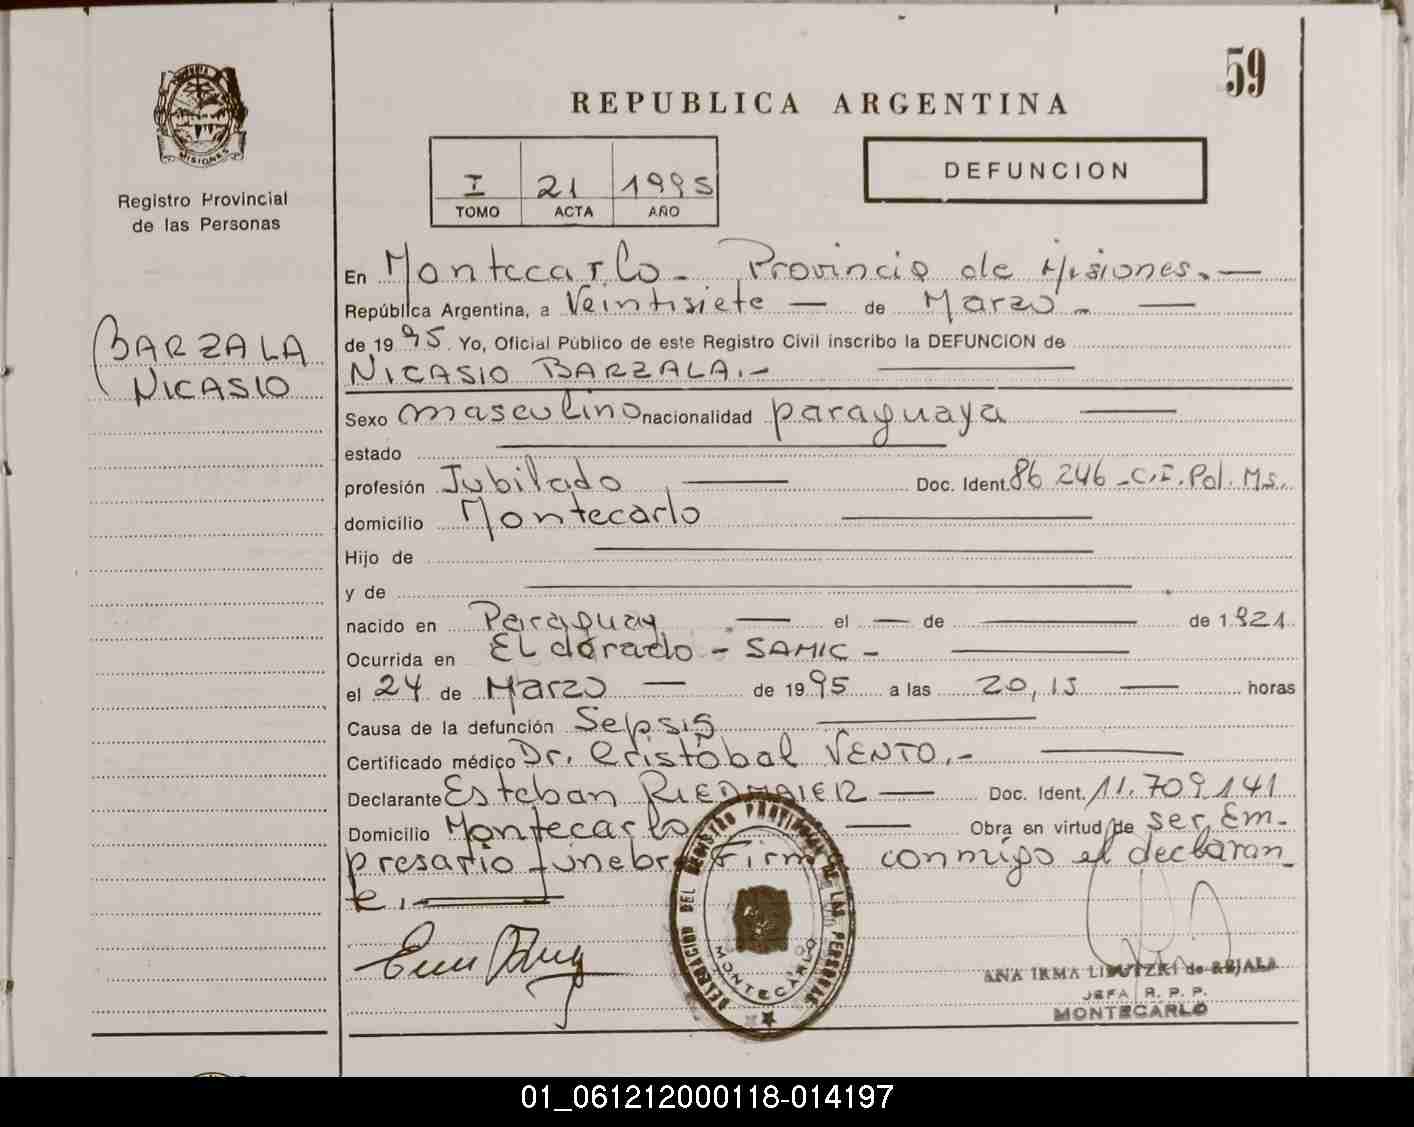 59
REPUBLICA ARGENTINA
MISIONES
Registro Provincial
de las Personas
I 21 1995
TOMO ACTA AÑO
DEFUNCION
En Montecarlo - Provincia de Misiones.-
República Argentina, a Veintisiete - de Marzo -
de 1995. Yo, Oficial Público de este Registro Civil inscribo la DEFUNCION de
NICASIO BARZALA.-
BARZALA
NICASIO
Sexo masculino nacionalidad paraguaya
estado
profesión Jubilado Doc. Ident. 86 246 - C.I. Pol. Ms.
domicilio Montecarlo
Hijo de
y de
nacido en Paraguay - el - de de 1921
Ocurrida en El dorado - SAMIC -
el 24 de Marzo - de 1995 a las 20,15 horas
Causa de la defunción Sepsis
Certificado médico Dr. Cristóbal VENTO.-
Declarante Esteban RIEDMAIER Doc. Ident. 11.709.141
Domicilio Montecarlo Obra en virtud de ser Em-
presario fúnebre Firma conmigo el declaran-
te.
DELEGACION DEL REGISTRO PROVINCIAL DE LAS PERSONAS
MONTECARLO
ANA IRMA de
JEFA R. P. P.
MONTECARLO
01_061212000118-014197